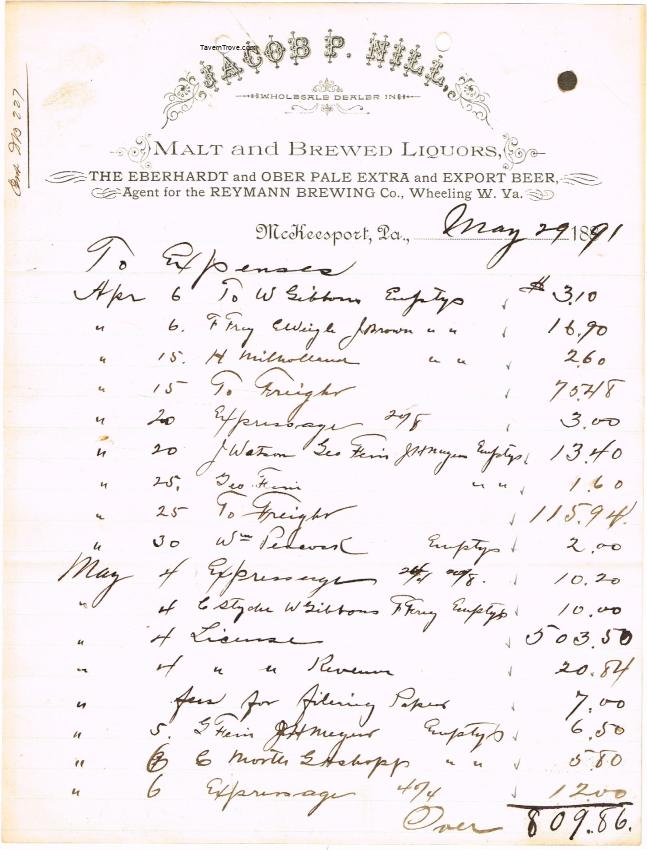 TavernTrove.com
JACOB P. NILL,
WHOLESALE DEALER IN
MALT and BREWED LIQUORS,
THE EBERHARDT and OBER PALE EXTRA and EXPORT BEER,
Agent for the REYMANN BREWING Co., Wheeling W. Va.
McKeesport, Pa., May 29 1891
To Expenses
Apr 6 To W Gibbons Emptys $ 3.10
" 6. F Frey C Weigle J Brown " " 16.90
" 15. H Milholland " " 2.60
" 15 To Freight 75.48
" 20 Expressage 20/8 3.00
" 20 J Watson Geo Fein J H Meyers Emptys 13.40
" 25. Geo Fein " " 1.60
" 25 To Freight 115.94.
" 30 Wm Peacock Emptys 2.00
May 4 Expressage 10.20
" 4 W Gibbons F Frey Emptys 10.00
" 4 License 503.50
" 4 " " Revenue 20.84
" fees for fileing Paper 7.00
" 5. G Fein J H Meyers Emptys 6.50
" 6 C " " 5.80
" 6 Expressage 40/4 12.00
Over 809.86.